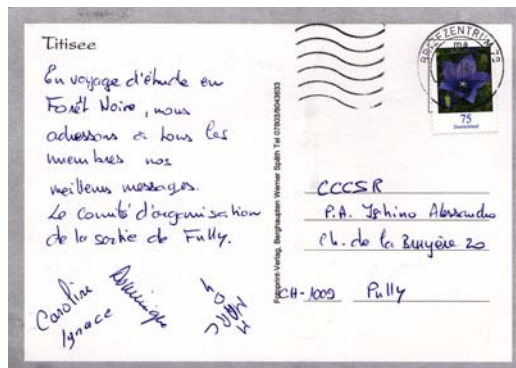 Titisee
En voyage d'étude en
Forêt Noire, nous
adressons à tous les
membres nos
meilleurs messages.
Le comité d'organisation
de la sortie de Fully.
Caroline
Dominique
Ignace
MARC
Fotoprint-Verlag, Berghaupten Werner Späth Tel 07803/5043633
BRIEFZENTRUM
ma
75
Deutschland
CCCSR
P.A. Ischino Alessandro
Ch. de la Bruyère 20
CH-1009 Pully